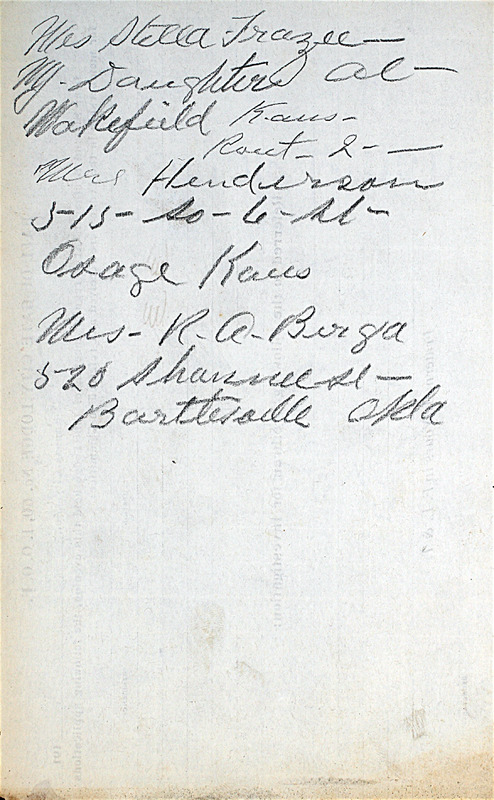 Mrs Stella Frazee—
My- Daughters at—
Wakefield Kans-
Rout- 2- —
Mrs Henderson
515- So- 6- St-
Osage Kans
Mrs- R. A. Berga
520 Shawnee St—
Barttesville Okla